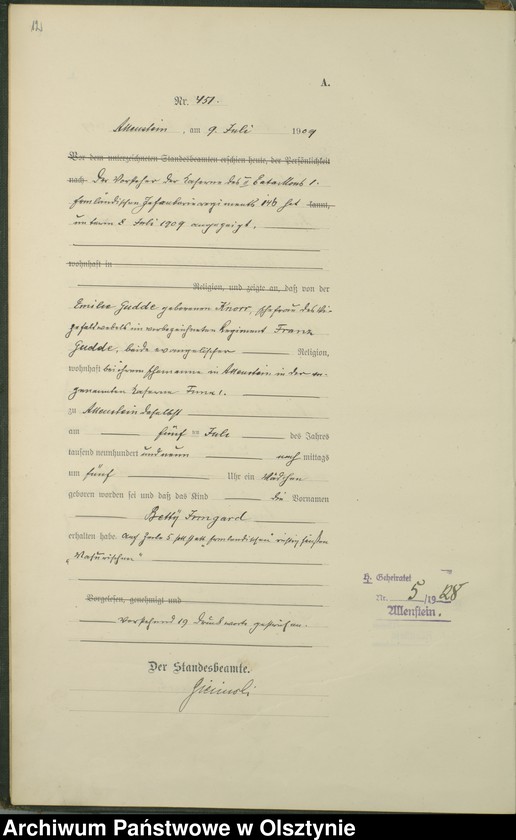 12
A.
Nr. 451.
Allenstein, am 9. Juli 1909
Vor dem unterzeichneten Standesbeamten erschien heute, der Persönlichkeit
nach Der Vorsteher der Kaserne des II Bataillons 1.
Ermländischen Infanterieregiments 146 hat kannt,
unterm 8 Juli 1909 angezeigt,
wohnhaft in
Religion, und zeigte an, daß von der
Emilie Gudde geborenen Knorr, Ehefrau des
im vorbezeichneten Regiment Franz
Gudde, beide evangelischer Religion,
wohnhaft bei ihrem Ehemanne in Allenstein in der vor-
genannten Kaserne
zu Allenstein daselbst
am fünf ten Juli des Jahres
tausend neunhundert und neun nach mittags
um fünf Uhr ein Mädchen
geboren worden sei und daß das Kind die Vornamen
Betty Irmgard
erhalten habe. Auf Zeile 5 statt "Ermländischen" richtig
"Masurischen"
Vorgelesen, genehmigt und
Vorstehend 19 Druckworte gestrichen.
Der Standesbeamte.
H. Geheiratet
Nr. 5/1928
Allenstein.
Archiwum Państwowe w Olsztynie